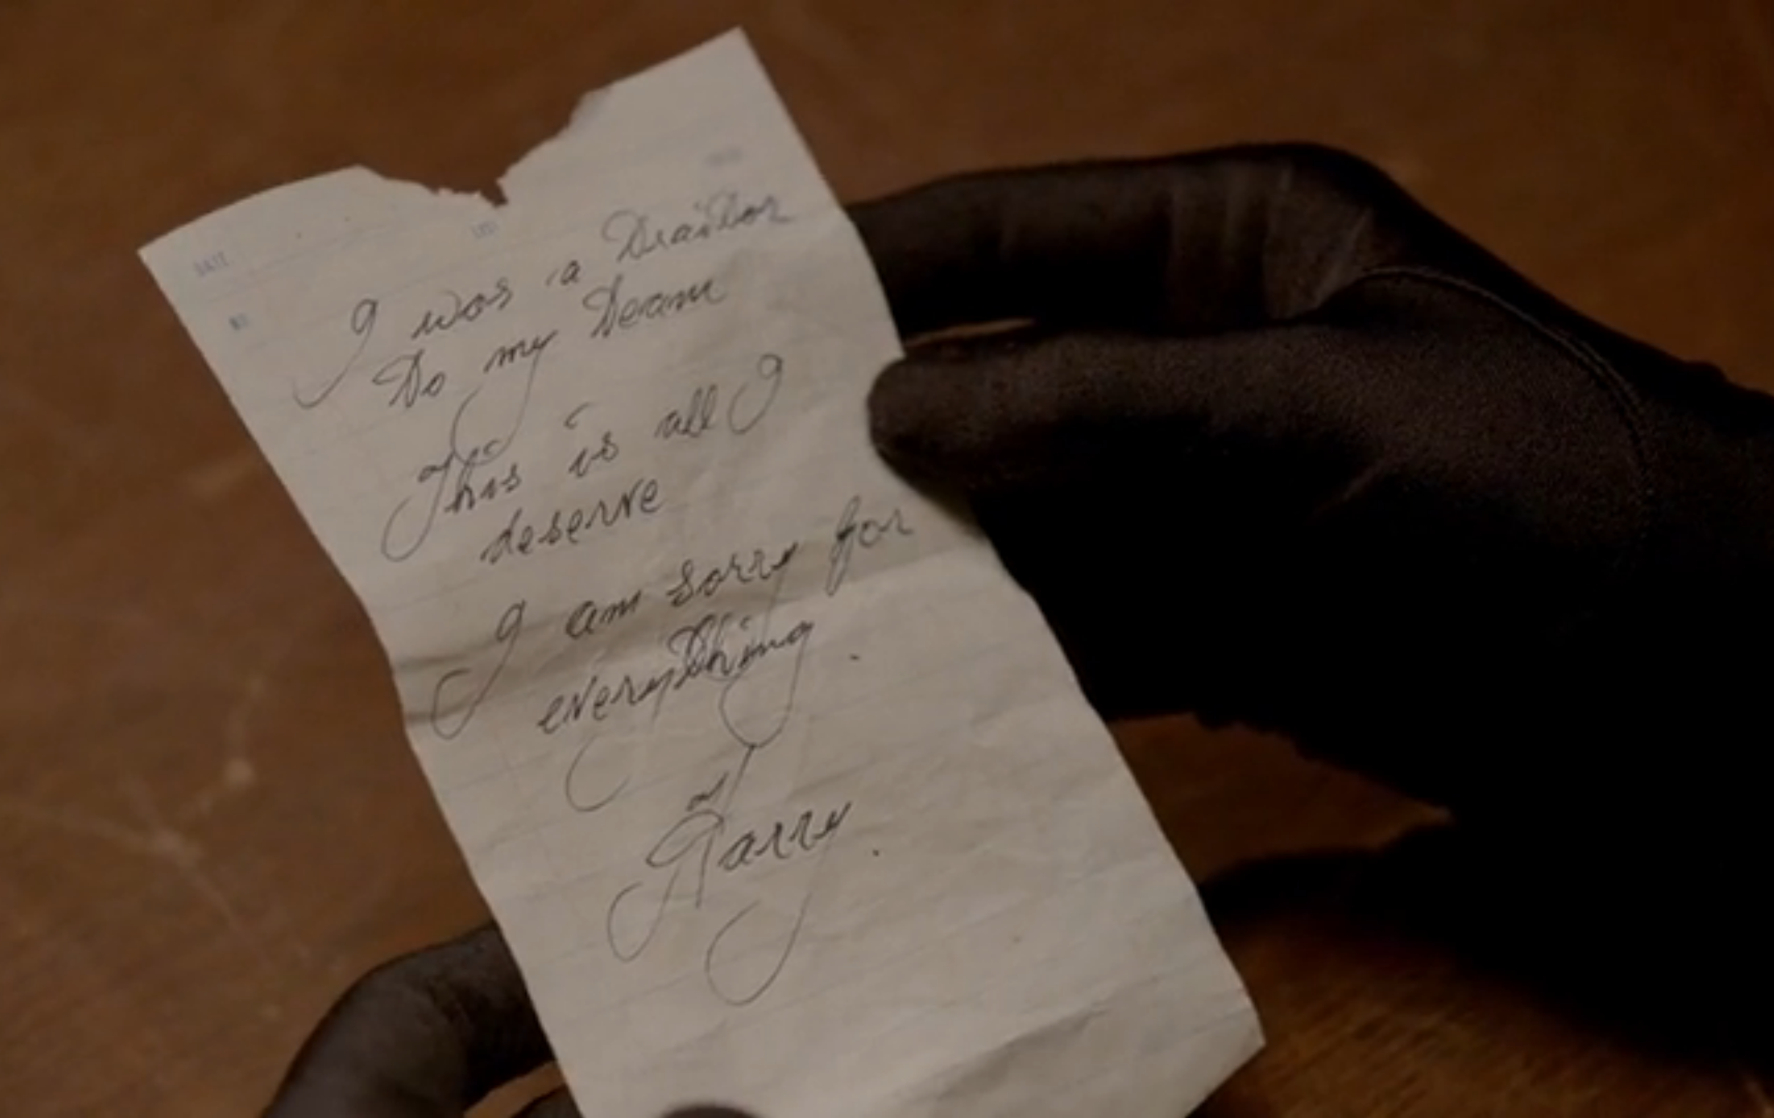 DATE
NO
I was a traitor
to my team
This is all I
deserve
I am sorry for
everything.
Garry.